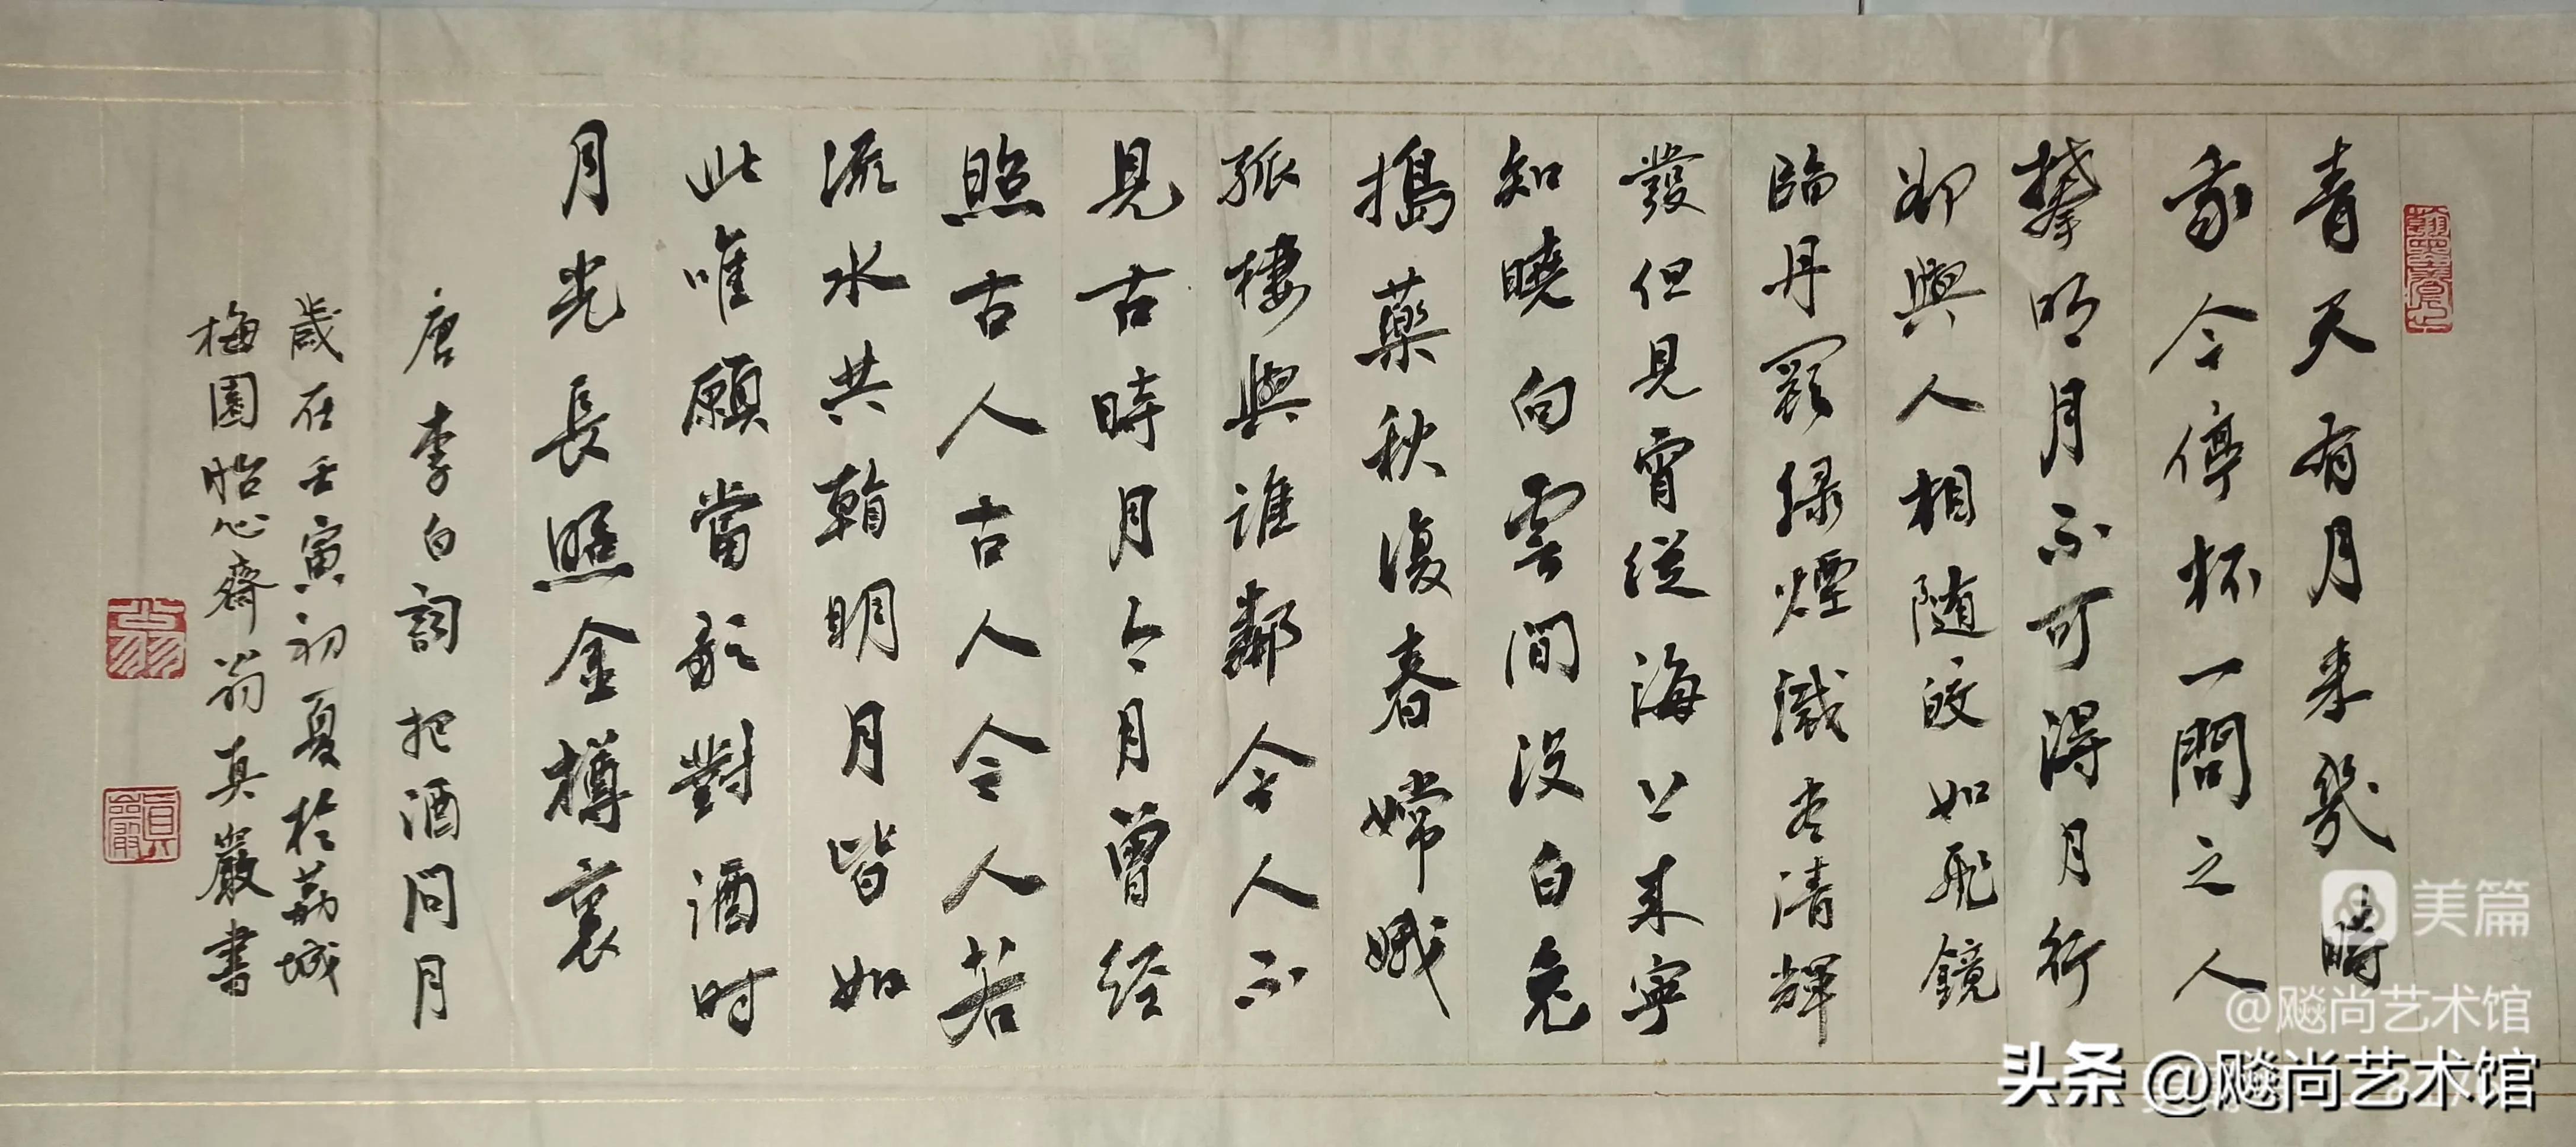 青天有月来幾時
我今停杯一問之人
攀明月不可得月行
却與人相随皎如飛鏡
臨丹闕綠煙滅盡清輝
發但見宵從海上来寧
知曉向雲間没白兔
搗藥秋復春嫦娥
孤棲與誰鄰今人不
見古時月今月曾经
照古人古人今人若
流水共看明月皆如
此唯願當歌對酒时
月光長照金樽裏
唐李白詞把酒问月
歲在壬寅初夏於荔城
梅園怡心齋翁真巖書
翁
真巖
美篇
@飚尚艺术馆
头条 @飚尚艺术馆